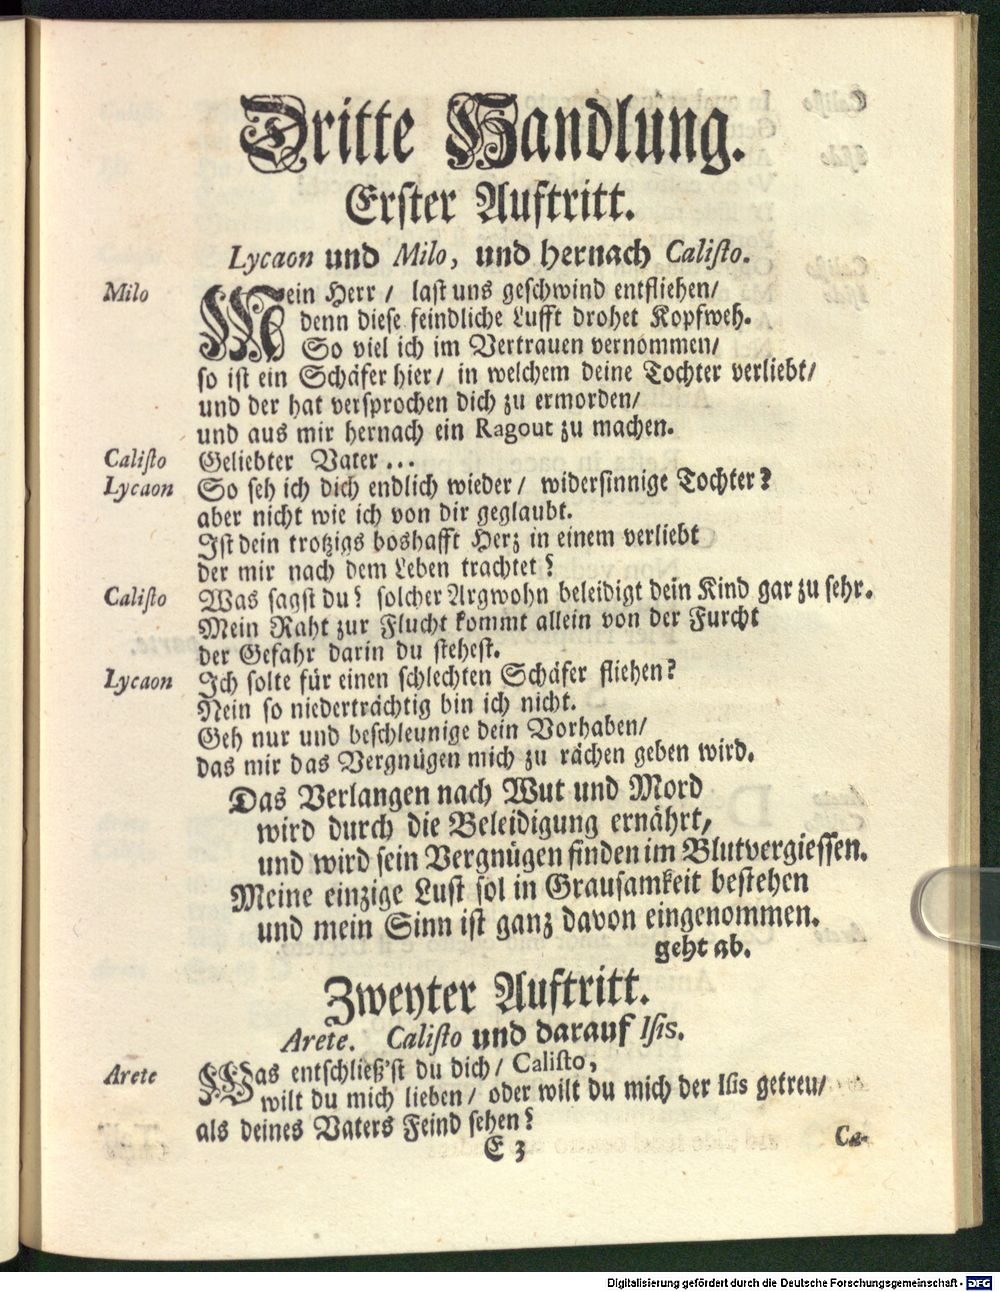 Dritte Handlung.
Erster Auftritt.
Lycaon und Milo, und hernach Calisto.
Milo Mein Herr / last uns geschwind entfliehen /
denn diese feindliche Lufft drohet Kopfweh.
So viel ich im Vertrauen vernommen /
so ist ein Schäfer hier / in welchem deine Tochter verliebt /
und der hat versprochen dich zu ermorden /
und aus mir hernach ein Ragout zu machen.
Calisto Geliebter Vater ...
Lycaon So seh ich dich endlich wieder / widersinnige Tochter?
aber nicht wie ich von dir geglaubt.
Ist dein trotzigs boshafft Herz in einem verliebt
der mir nach dem Leben trachtet?
Calisto Was sagst du? solcher Argwohn beleidigt dein Kind gar zu sehr.
Mein Raht zur Flucht kommt allein von der Furcht
der Gefahr darin du stehest.
Lycaon Ich solte für einen schlechten Schäfer fliehen?
Nein so niederträchtig bin ich nicht.
Geh nur und beschleunige dein Vorhaben /
das mir das Vergnügen mich zu rächen geben wird.
Das Verlangen nach Wut und Mord
wird durch die Beleidigung ernährt,
und wird sein Vergnügen finden im Blutvergiessen.
Meine einzige Lust sol in Grausamkeit bestehen
und mein Sinn ist ganz davon eingenommen.
geht ab.
Zweyter Auftritt.
Arete. Calisto und darauf Isis.
Arete Was entschließ'st du dich / Calisto,
wilt du mich lieben / oder wilt du mich der Isis getreu /
als deines Vaters Feind sehen?
E 3
Ca-
Digitalisierung gefördert durch die Deutsche Forschungsgemeinschaft - DFG